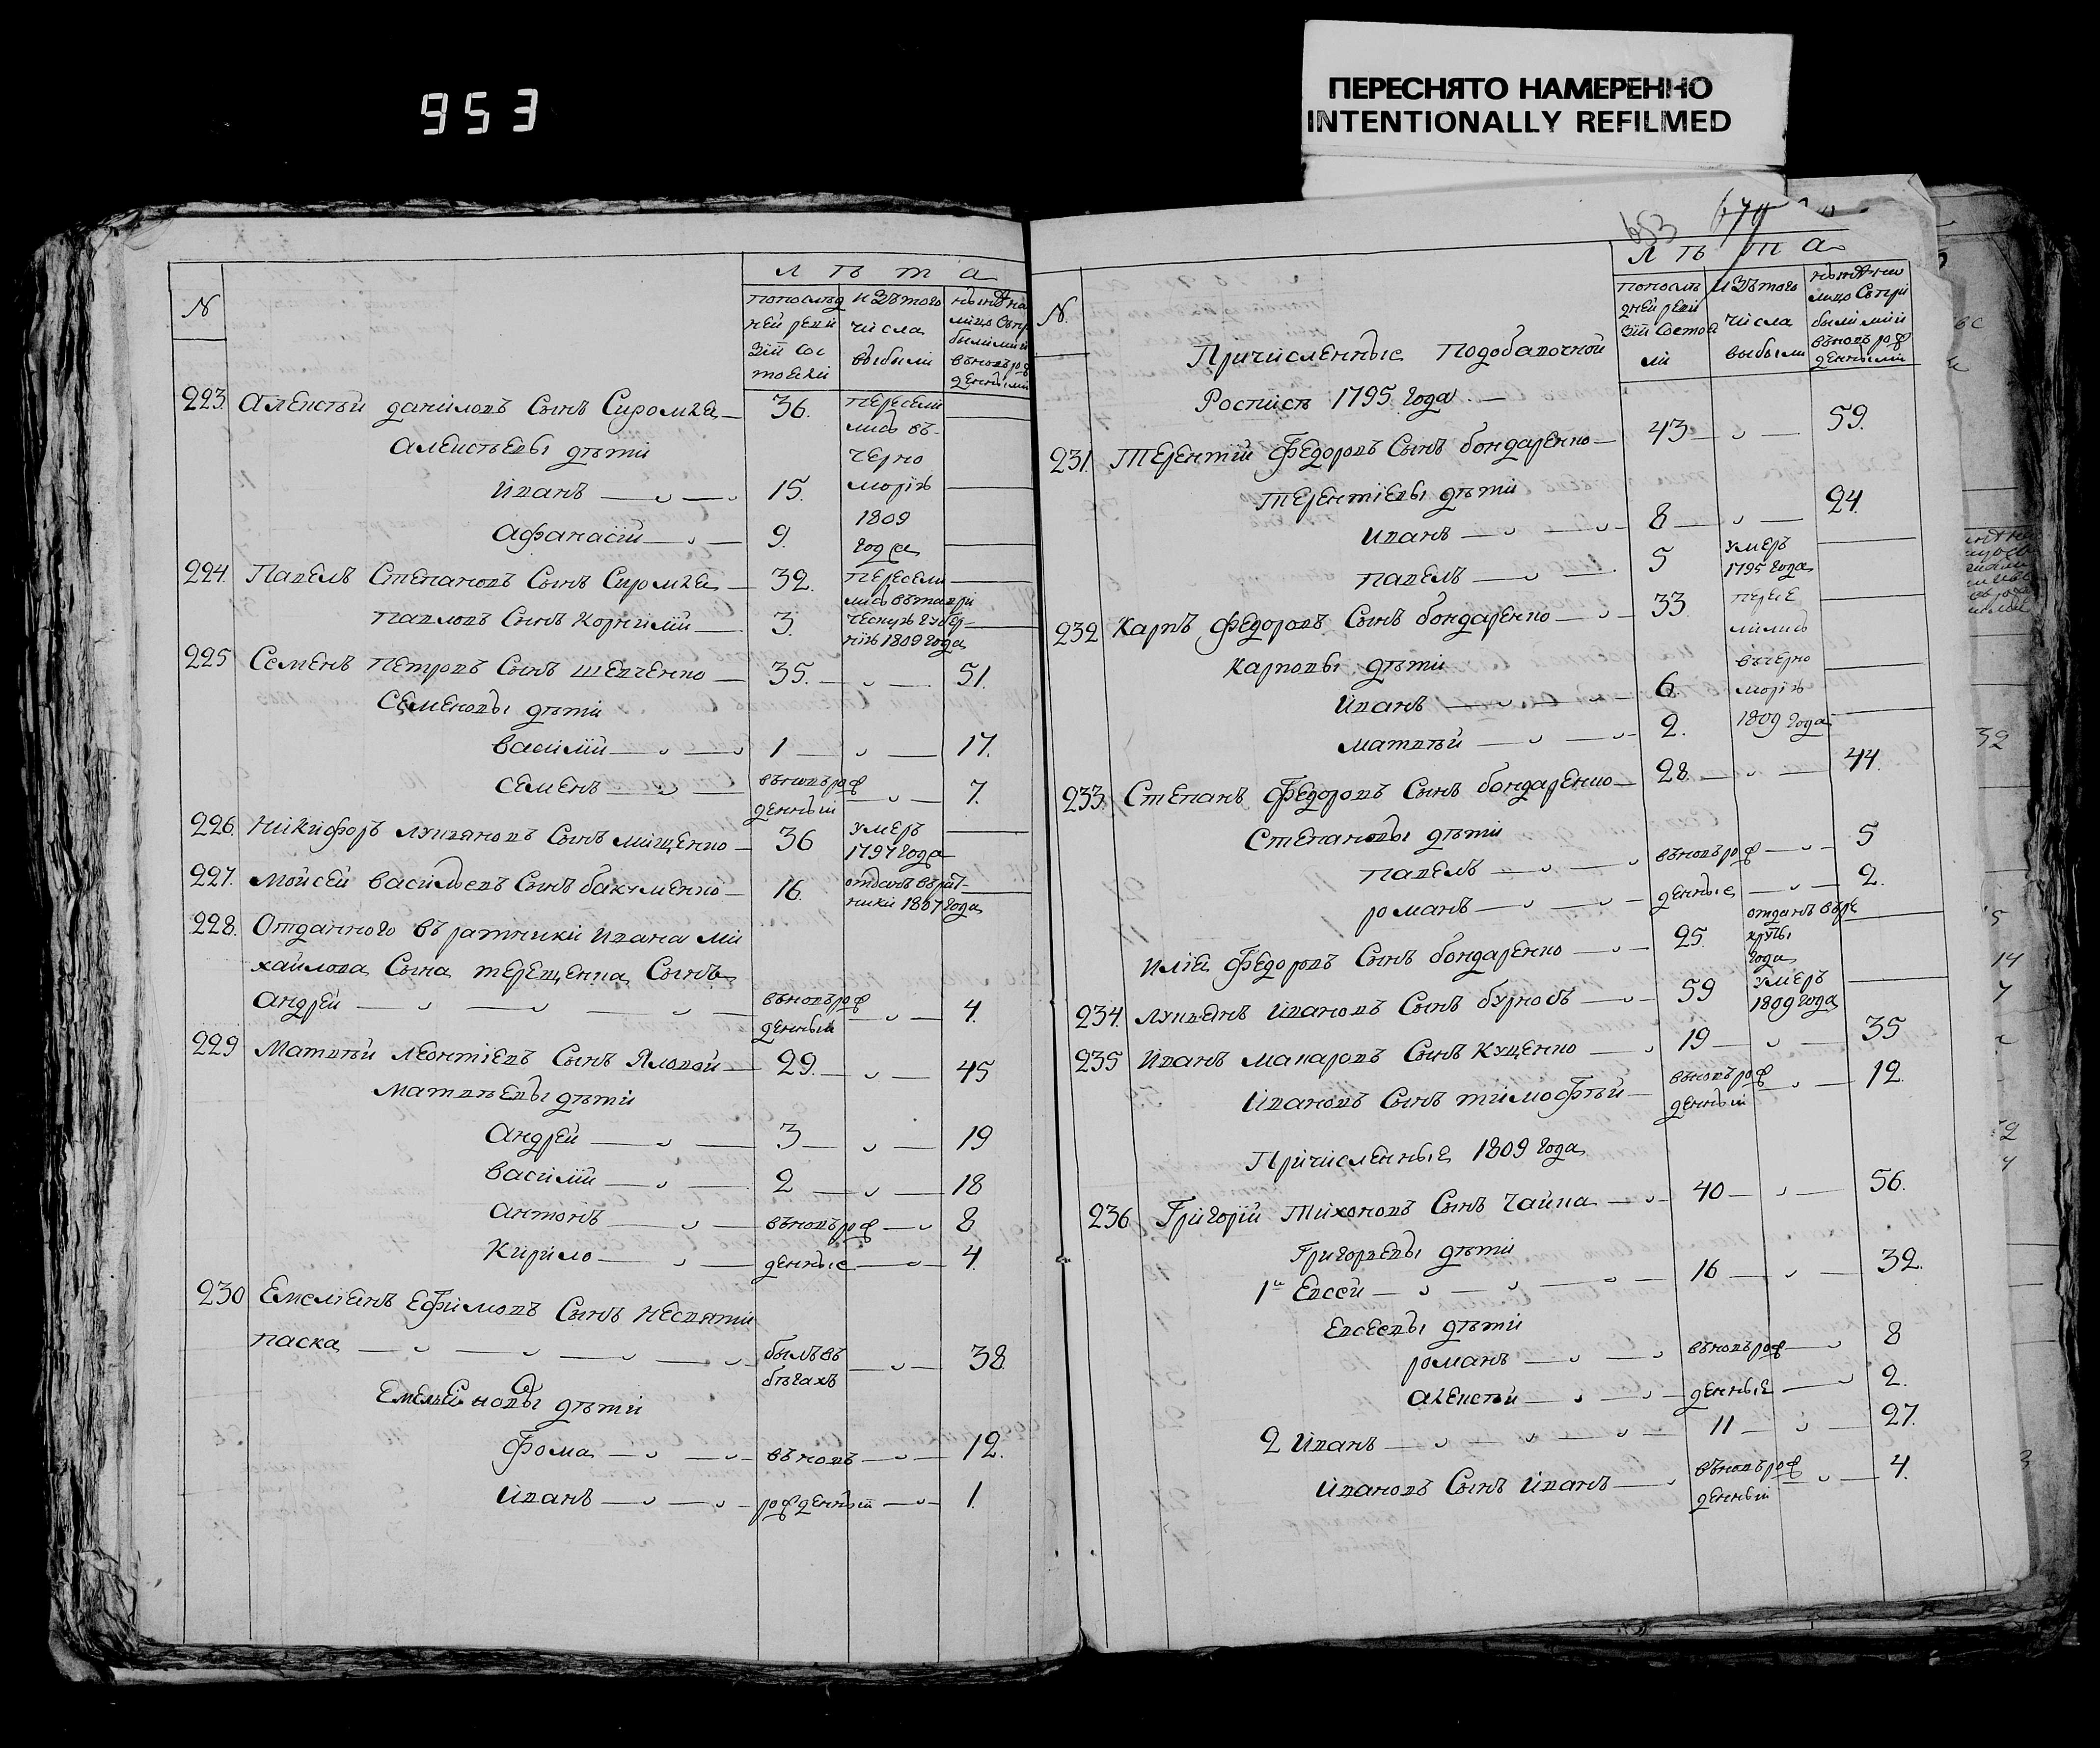 953
ПЕРЕСНЯТО НАМЕРЕННО
INTENTIONALLY REFILMED
N
лѣта
попослѣд
ней реви
зіи сос
тояли
изътого
числа
выбыли
нынѣ на
лицо съпр
былимии
вновьрож
денными
223. Алексѣй даниловъ Сынъ Сиромха — 36. пересели
лись въ
Алексѣевы дѣти черно
Иванъ — 15. морію
1809
Афанасій — 9. года
224. Павелъ Степановъ Сынъ Сиромха — 32. пересели
лись вътаври
Павловъ Сынъ Корнилій — 3. ческую губер
нію 1809 года
225 Семенъ Петровъ Сынъ шевченко — 35. — 51.
Семеновы дѣти
василій — 1 — 17.
семенъ — вновьрож
денный — 7.
226. Никифоръ лукяновъ Сынъ мищенко — 36 умеръ
1797 года
227. мойсей васильевъ Сынъ бакуменко — 16. отданъ врат
ники 1807 года
228. Отданного въ ратники ивана ми
хайлова Сына терещенка Сынъ
андрей — вновьрож
денный — 4.
229 Матвѣй леонтіевъ Сынъ Яловой — 29. — 45
матвѣевы дѣти
андрей — 3 — 19
василій — 2 — 18
антонъ — вновьрож — 8
Кирило — денные — 4
230 Емеліянъ Ефимовъ Сынъ несвяти
паска — былъ въ
бѣгахъ — 38.
Емеліяновы дѣти
Фома — вновь — 12.
Иванъ — рожденный — 1.
653
N.
лѣта
попослѣ
дней реви
зіи состоя
ли
изътого
числа
выбыли
нынѣ на
лицо съпри
былимии
вновь рож
денными
Причисленные подобавочной
Росписѣ 1795 года. —
231. Терентій Федоровъ Сынъ бондаренко — 43 — 59.
Терентіевы дѣти
иванъ — 8 — 24.
павелъ — 5 умеръ
1795 года
232 Карпъ Федоровъ Сынъ бондаренко — 33 пересе
лились
Карповы дѣти въчерно
Иванъ — 6. морію
матвѣй — 2. 1809 года
233. Степанъ Федоровъ Сынъ бондаренко — 28. — 44.
Степановы дѣти
павелъ — вновьрож — 5
романъ — денные — 2.
илія Федоровъ Сынъ бондаренко — 25. отданъ вре
круты
года
234. лукянъ ивановъ Сынъ бурнобъ — 59 умеръ
1809 года
235 Иванъ макаровъ Сынъ Куценко — 19 — 35
Ивановъ Сынъ тимофѣй — вновьрож
денный — 12.
Причисленные 1809 года
236 Григорій Тихоновъ Сынъ Чайка — 40 — 56.
Григорьевы дѣти
1й Евсей — 16 — 32.
Евсеевы дѣти
романъ — вновьрож — 8
алексѣй — денные — 2.
2 Иванъ — 11 — 27.
Ивановъ Сынъ Иванъ — вновьрож
денный — 4.